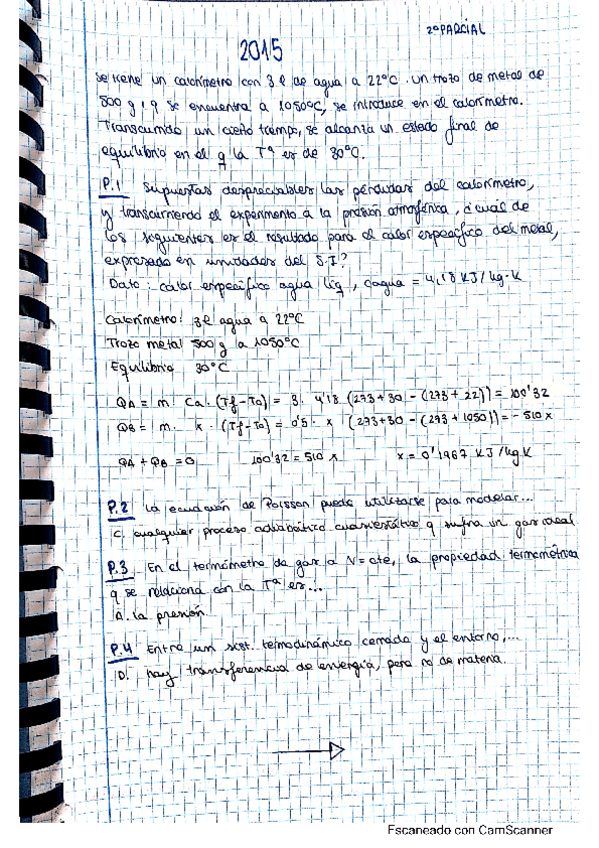 2º PARCIAL
2015
Se tiene un calorímetro con 3 l de agua a 22ºC. Un trozo de metal de
500 g, q se encuentra a 1050ºC, se introduce en el calorímetro.
Transcurrido un cierto tiempo, se alcanza un estado final de
equilibrio en el q la Tª es de 30ºC.
P.1 Supuestas despreciables las pérdidas del calorímetro,
y transcurriendo el experimento a la presión atmosférica, ¿cuál de
los siguientes es el resultado para el calor específico del metal,
expresado en unidades del S.I?
Dato: calor específico agua líq, cagua = 4,18 KJ/kg·K
Calorímetro: 3l agua a 22ºC
Trozo metal 500 g a 1050ºC
Equilibrio 30ºC
QA = m · Ca · (Tf-To) = 3 · 4'18 (273+30 - (273+22)) = 100'32
QB = m · x · (Tf-To) = 0'5 · x (273+30 - (273+1050)) = - 510 x
QA + QB = 0 100'32 = 510 x x = 0'1967 KJ/kg K
P.2 La ecuación de Poisson puede utilizarse para modelar...
C. cualquier proceso adiabático cuasiestático q sufra un gas ideal
P.3 En el termómetro de gas a V=cte, la propiedad termométrica
q se relaciona con la Tª es...
A. la presión.
P.4 Entre un sist. termodinámico cerrado y el entorno,...
D. hay transferencia de energía, pero no de materia.
Escaneado con CamScanner